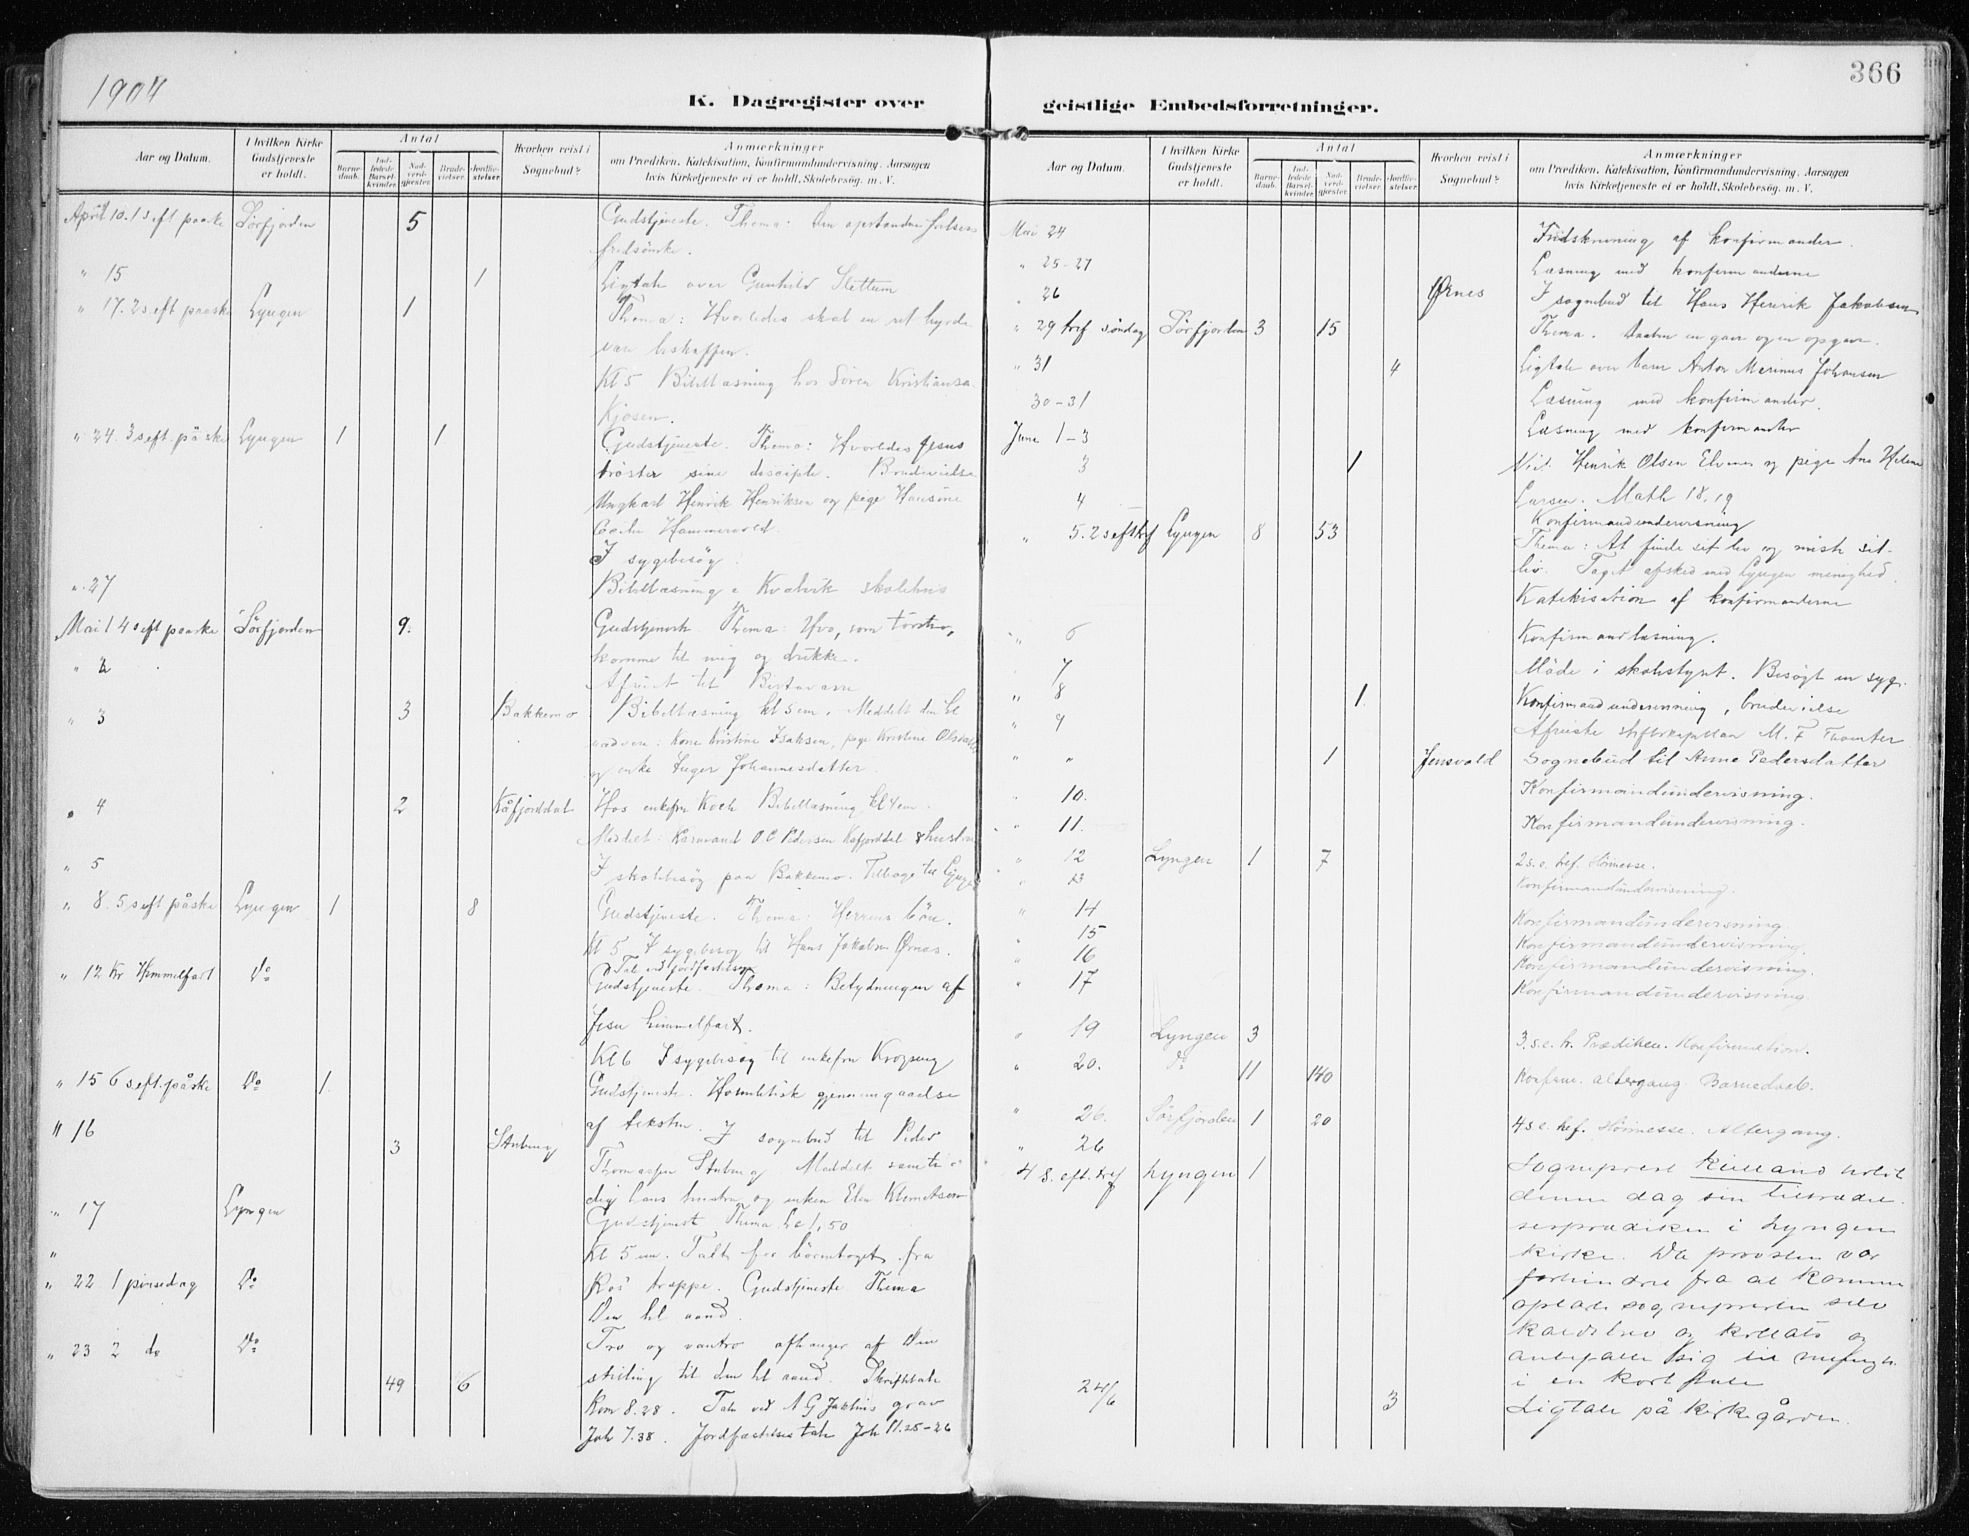 1904
366
K. Dagregister over geistlige Embedsforretninger.
Aar og Datum.
I hvilken Kirke Gudstjeneste er holdt.
Antal
Barnedaab.
Indledede Barselkvinder.
Nadverdgjester.
Brudevielser.
Jordfæstelser.
Hvorhen reist i Sognebud?
Anmærkninger
om Prædiken, Katekisation, Konfirmandundervisning, Aarsagen
hvis Kirketjeneste ei er holdt, Skolebesøg, m. V.
April 10. 1 s eft paaske Sørfjorden 5 Gudstjeneste. Thema: Den opstandne frelsers
fredsønske.
" 15 1 Ligtale over Gunhild Slettum
" 17. 2 s eft paaske Lyngen 1 Thema: Hvorledes skal en ret hyrde
være beskaffen.
Kl 5 Bibellæsning hos Søren Kristiansen
Kjosen.
" 24. 3 s eft påske Lyngen 1 1 Gudstjeneste. Thema: Hvorledes Jesus
trøster sine disciple. Brudevielse
Ungkarl Henrik Henriksen og pige Hansine
Hammervold.
I sygebesøg
" 27 Bibellæsning i Kvalvik skolehus
Mai 1 4 s eft paaske Sørfjorden 9. Gudstjeneste. Thema: Hvo, som tørster,
komme til mig og drikke.
" 2 Afreist til Birtavarre
" 3 3 Bakkemo Bibellæsning kl 5 em. Meddelt den hl
nadvere: Kone Kristine Isaksen, pige Kristine Olsdatter
og enke Inger Johannesdatter.
" 4 2 Kåfjorddal Hos enkefru Koch Bibellæsning kl 4 em.
Meddelt: Kårmand O C Pedersen Kåfjorddal & hustru
" 5 I skolebesøg paa Bakkemo. Tilbage til Lyngen
" 8. 5 s eft påske Lyngen 1 8 Gudstjeneste. Thema: Herrens bøn.
Kl 5 I sygebesøg til Hans Jakobsen Ørnes.
Tale ved jordfæstelsen
" 12 Kr Himmelfart Do Gudstjeneste. Thema: Betydningen af
Jesu himmelfart.
Kl 6 I sygebesøg til enkefru
" 15 6 s eft. påske Do 1. Gudstjeneste. Homiletisk gjennemgaaelse
af teksten.
" 16 3 Stubeng I sognebud til Peder
Thomassen Stubeng Meddelt samti-
dig hans hustru og enken Elen Klemetsen
" 17 Lyngen Gudstjenest Thema Lc 1,50
" Kl 5 em. Talt for børnetoget fra
" 22 1 pinsedag Do trappe. Gudstjeneste Thema
Den hl aand.
" 23 2 do Do Tro og vantro afhænger af Din
49 6 stilling til den hl aand. Skriftetale
Rom 8.28. Tale ved grav
Joh 7.38. Jordfæstelsestale Joh 11.25-26
Aar og Datum.
I hvilken Kirke Gudstjeneste er holdt.
Antal
Barnedaab.
Indledede Barselkvinder.
Nadverdgjester.
Brudevielser.
Jordfæstelser.
Hvorhen reist i Sognebud?
Anmærkninger
om Prædiken, Katekisation, Konfirmandundervisning, Aarsagen
hvis Kirketjeneste ei er holdt, Skolebesøg, m. V.
Mai 24 Indskrivning af konfirmander.
" 25-27 Læsning med konfirmanderne
" 26 Ørnes I sognebud til Hans Henrik Jakobsen
" 29 tref søndag Sørfjorden 3 15 Thema. Daaben en gave og en opgave.
" 31 4 Ligtale over barn Anton Marinus Johansen
30-31 Læsning med konfirmander.
June 1-3 Læsning med konfirmander
3 1 Viet: Henrik Olsen Elvenes og pige Ane Helene
Larsen. Math 18.19
4 Konfirmandundervisning
" 5. 2 s eft tref Lyngen 8 53 Thema: At finde sit liv og miste sit
liv. Taget afsked med Lyngen menighed.
Katekisation af konfirmanderne
" 6 Konfirmandlæsning.
7 Møde i skolestyret. Besøgt en syg.
" 8 1. Konfirmandundervisning, brudevielse
" 9 Afreiste stiftskapellan M. F.
" " 1 Jensvold Sognebud til Anne Pedersdatter
" 10. Konfirmandundervisning.
" 11. Konfirmandundervisning.
" 12 Lyngen 1 7 2 s. e. tref. Høimesse.
" 13 Konfirmandundervisning.
" 14 Konfirmandundervisning.
" 15 Konfirmandundervisning.
" 16 Konfirmandundervisning.
" 17 Konfirmandundervisning.
" 19 Lyngen 3 3. s. e. tr. Prædiken. Konfirmation.
" 20. Do 11 140 Konfirm. altergang. Barnedaab.
" 26. Sørfjorden 1 20 4 s e. tref. Høimesse. Altergang.
" 26
4 S. eft. tref Lyngen 1 Sogneprest Kielland holdt
denne dag sin tiltrædel-
sesprædiken i Lyngen
kirke. Da provsten var
forhindret fra at komme
oplæste sognepresten selv
kaldsbrev og kollats og
anbefalte sig til menigh.
i en kort tale
24/6 3 Ligtale på kirkegården.